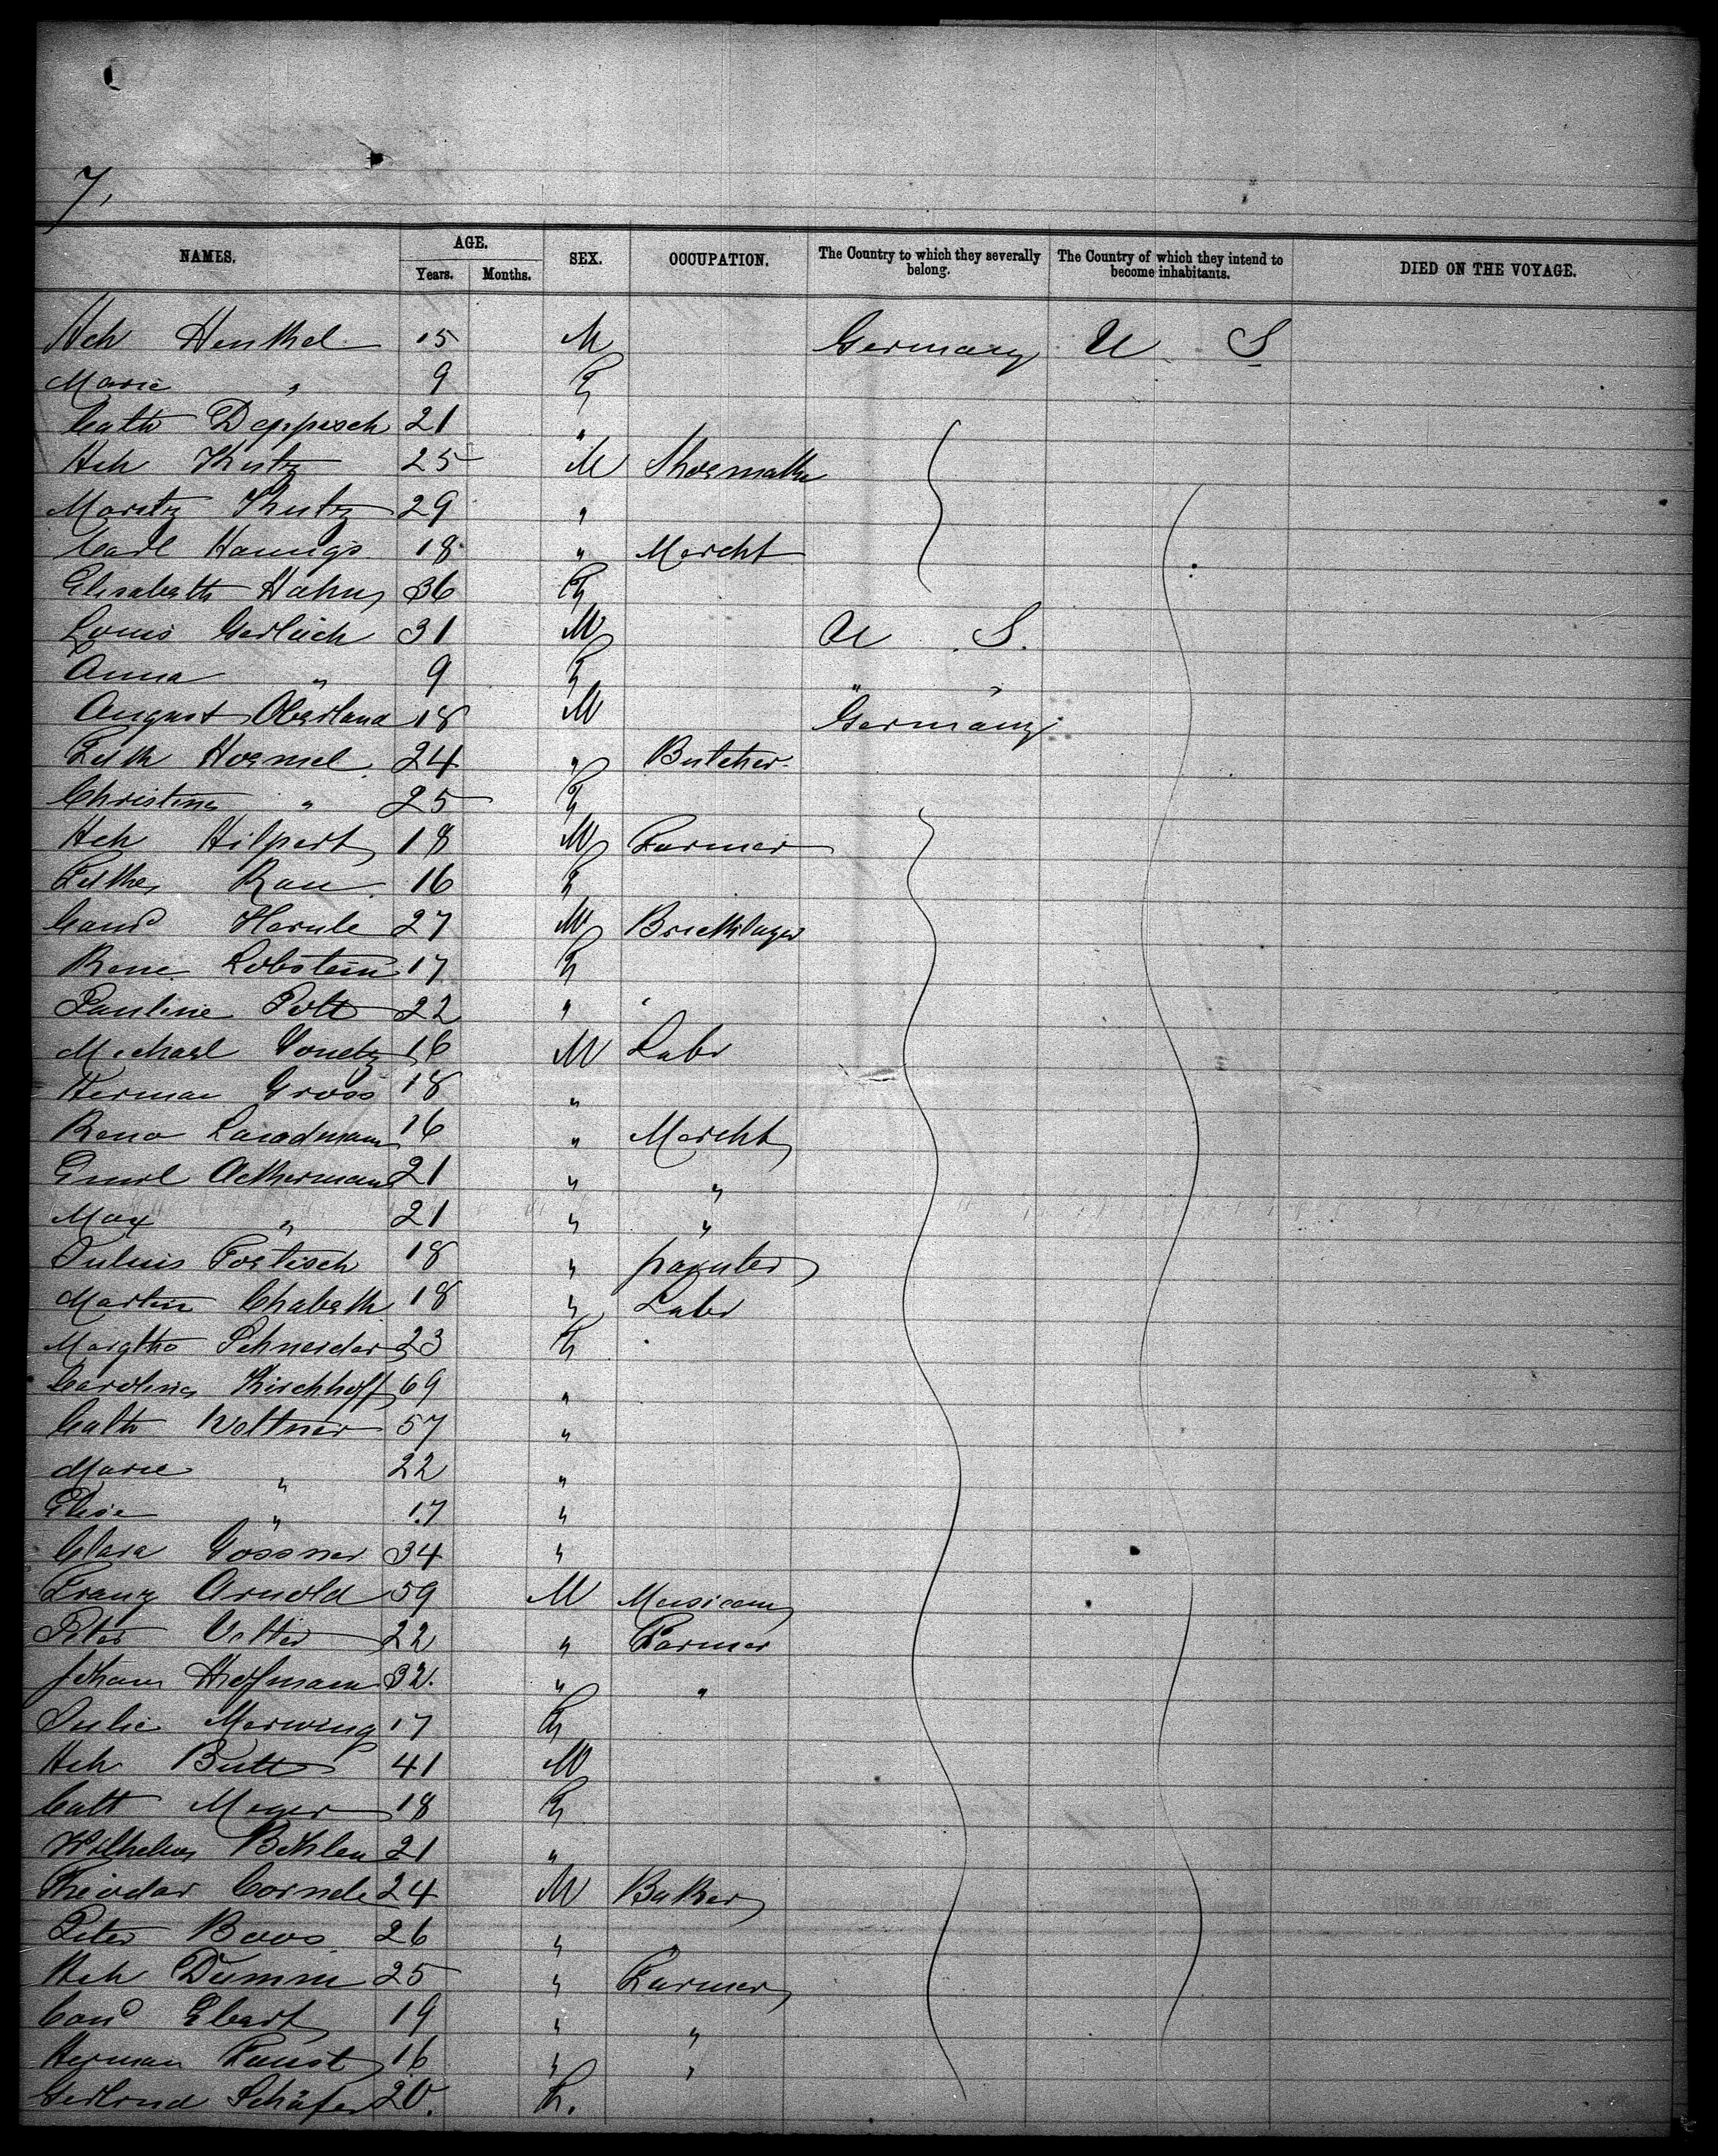 7,
NAMES. AGE. Years. Months. SEX. OCCUPATION. The Country to which they severally belong. The Country of which they intend to become inhabitants. DIED ON THE VOYAGE.
Hch Henkhel 15 M Germany U S
Marie " 9 F
Cath Deppisch 21 "
Hch Kutz 25 M Shoemaker
Moritz Kutz 29 "
Carl Hannigs 18 " Mercht
Elisabeth Hahn 36 F
Louis Gerlach 31 M U S.
Anna " 9 F " "
August Oberland 18 M Germany
Hoemel 24 " Butcher
Christine " 25 F
Hch Hilpert 18 M Farmer
Rau 16 F
Conrd Hernle 27 M Bricklayer
Rene Lobstein 17 F
Pauline Pott 22 "
Michael Gonetz 16 M Labr
Herman Gross 18 "
Reno Landmann 16 " Mercht
Emil Ackermann 21 " "
Max " 21 " "
Julius Foetisch 18 " paynter
Martin Chabeth 18 " Labr
Margtha Schneider 23 F
Carolina Kirchhoff 69 "
Cath Woltner 57 "
Marie " 22 "
Elise " 17 "
Clara Gossner 34 "
Franz Arnold 59 M Musican
Peter Vetter 22 " Farmer
Johann Hofmann 32. " "
Julie Merwing 17 F
Hch Butt 41 M
Cath Meyer 18 F
Wilhelm Bohlen 21 "
Theodor Cornele 24 M Baker
Peter Boos 26 " "
Hch Dumm 25 " Farmer
Conrd Ebert 19 " "
Herman Faust 16 " "
Schäfer 20. F.